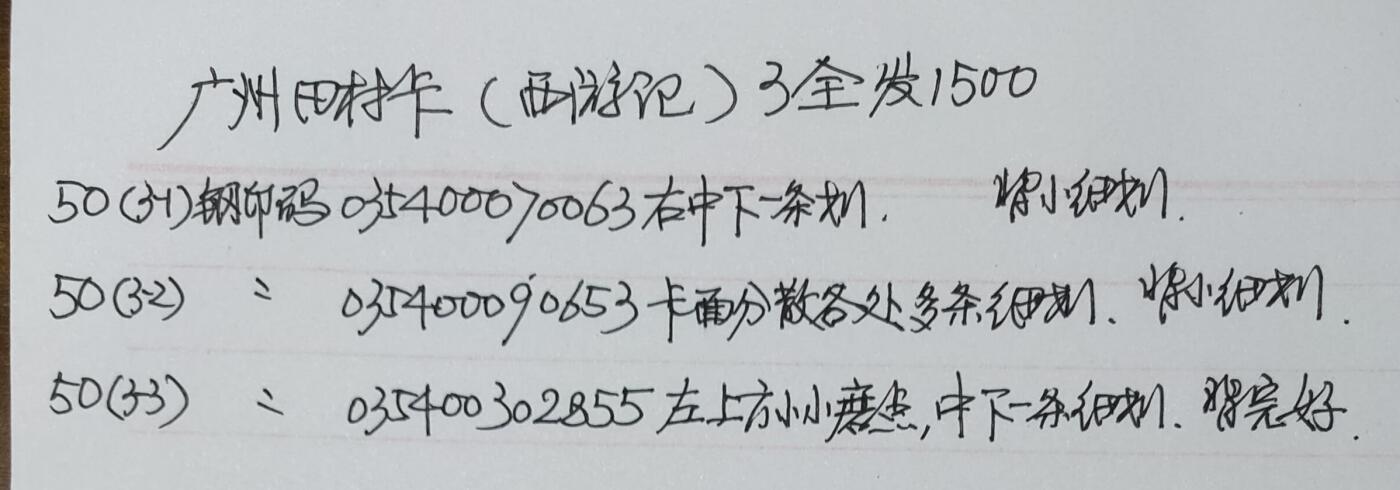 广州田村卡（西游记）3全发1500
50(3-1)钢印码035400070063右中下一条划. 背小细划.
50(3-2) 〃 035400090653卡面分散各处多条细划、背小细划.
50(3-3) 〃 035400302855左上方小小磨点,中下一条细划. 背完好.